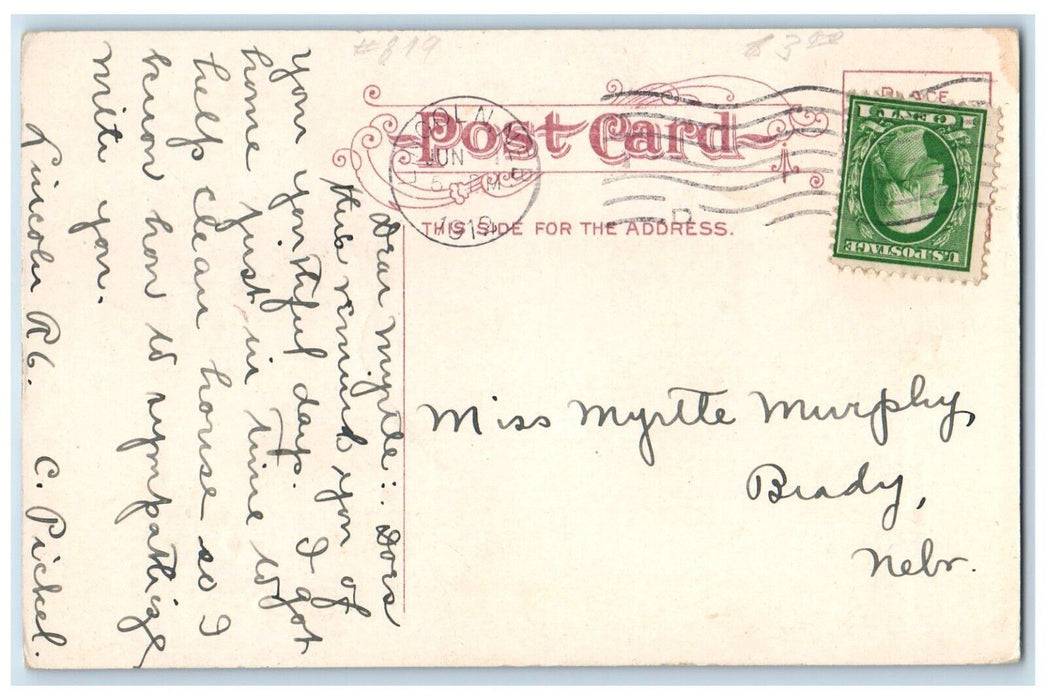 #819
$3.00
Post Card
THIS SIDE FOR THE ADDRESS.
PLACE
1 CENT 1
U.S. POSTAGE
JUN
5 PM
Dear Myrtle: Does
this remind you of
your youthful days. I got
home just in time to
help clean house so I
know how to sympathize
with you.
Lincoln R6. C. Pickel.
Miss Myrtle Murphy,
Brady,
Nebr.